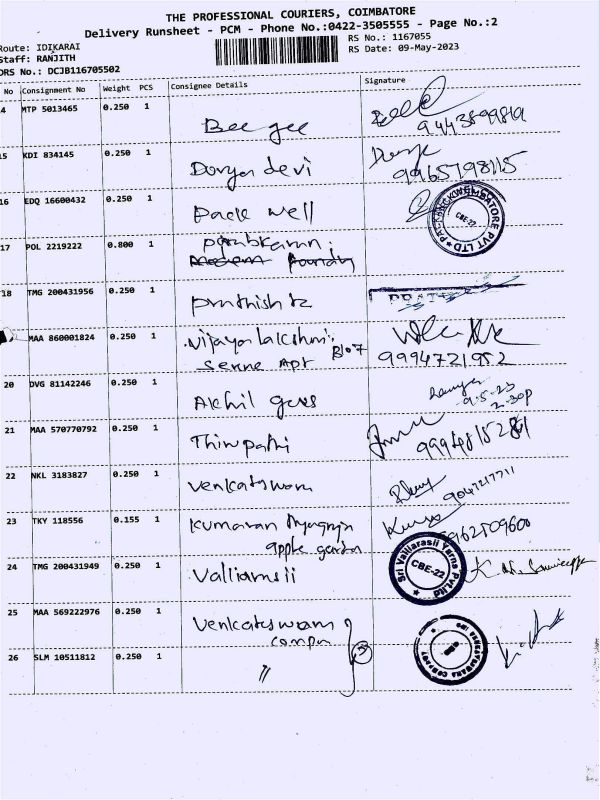 THE PROFESSIONAL COURIERS, COIMBATORE
Delivery Runsheet - PCM - Phone No.:0422-3505555 - Page No.:2
Route: IDIKARAI
RS No.: 1167055
Staff: RANJITH
RS Date: 09-May-2023
DRS No.: DCJB116705502
No Consignment No Weight PCS Consignee Details Signature
4 MTP 5013465 0.250 1 Bee gee
9443899819
15 KDI 834145 0.250 1 Durga devi
9965798115
16 EDQ 16600432 0.250 1 pack well
CBE-22
17 POL 2219222 0.800 1
Foundry
18 TMG 200431956 0.250 1
MAA 860001824 0.250 1 Vijaya lakshmi.
Apt B107 9994721952
20 DVG 81142246 0.250 1 Akhil
9.5.23
2.30p
21 MAA 570770792 0.250 1 Thirupathi
22 NKL 3183827 0.250 1 Venkateswara 9047217711
23 TKY 118556 0.155 1 Kumaran
apple garden 9962509600
24 TMG 200431949 0.250 1 Valliarasii
Sri Valliarasii Yarns Pvt Ltd CBE-22
25 MAA 569222976 0.250 1 Venkateswara
SRI VENKATESWARA COMPANY
26 SLM 10511812 0.250 1 "